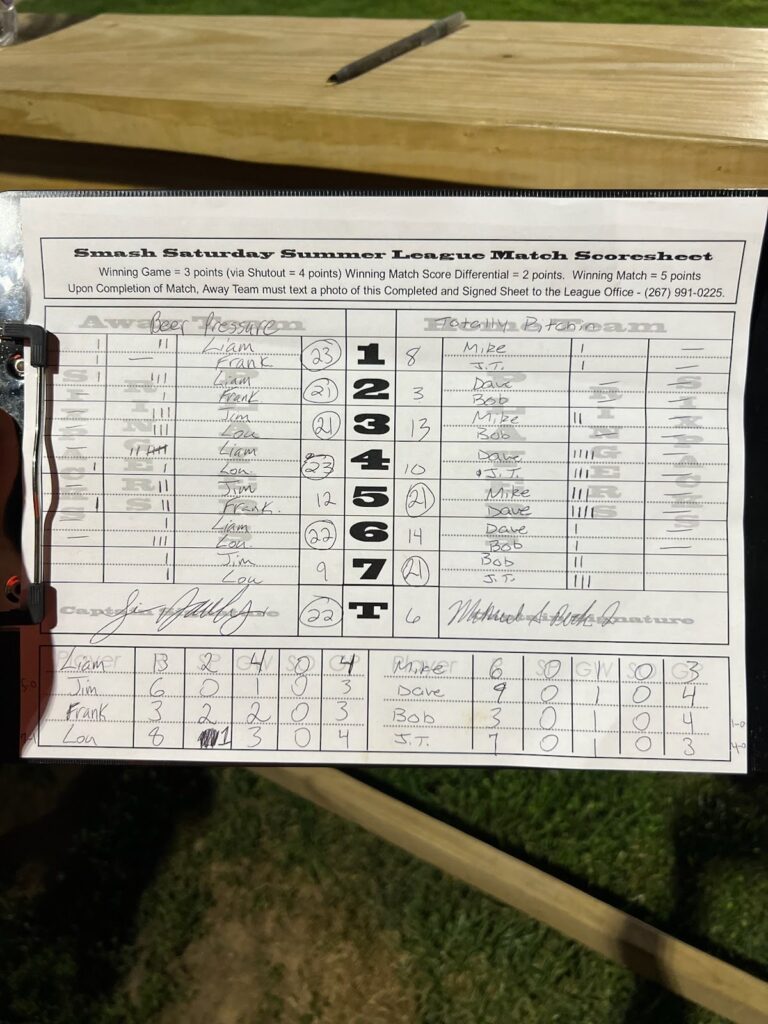 Smash Saturday Summer League Match Scoresheet
Winning Game = 3 points (via Shutout = 4 points) Winning Match Score Differential = 2 points. Winning Match = 5 points
Upon Completion of Match, Away Team must text a photo of this Completed and Signed Sheet to the League Office - (267) 991-0225.
Away Team Beer Pressure Home Team Totally
Liam 23 1 8 Mike
Frank J.T.
Liam 21 2 3 Dave
Frank Bob
Jim 21 3 13 Mike
Lou Bob
Liam 23 4 10 Dave
Lou J.T.
Jim 12 5 21 Mike
Frank Dave
Liam 22 6 14 Dave
Lou Bob
Jim 9 7 21 Bob
Lou J.T.
Captain Signature 22 T 6 Signature
Player GW Player SO GW SO GP
Liam 13 2 4 0 4 Mike 6 0 1 0 3
Jim 6 0 1 0 3 Dave 9 0 1 0 4
Frank 3 2 2 0 3 Bob 3 0 1 0 4
Lou 8 1 3 0 4 J.T. 7 0 1 0 3